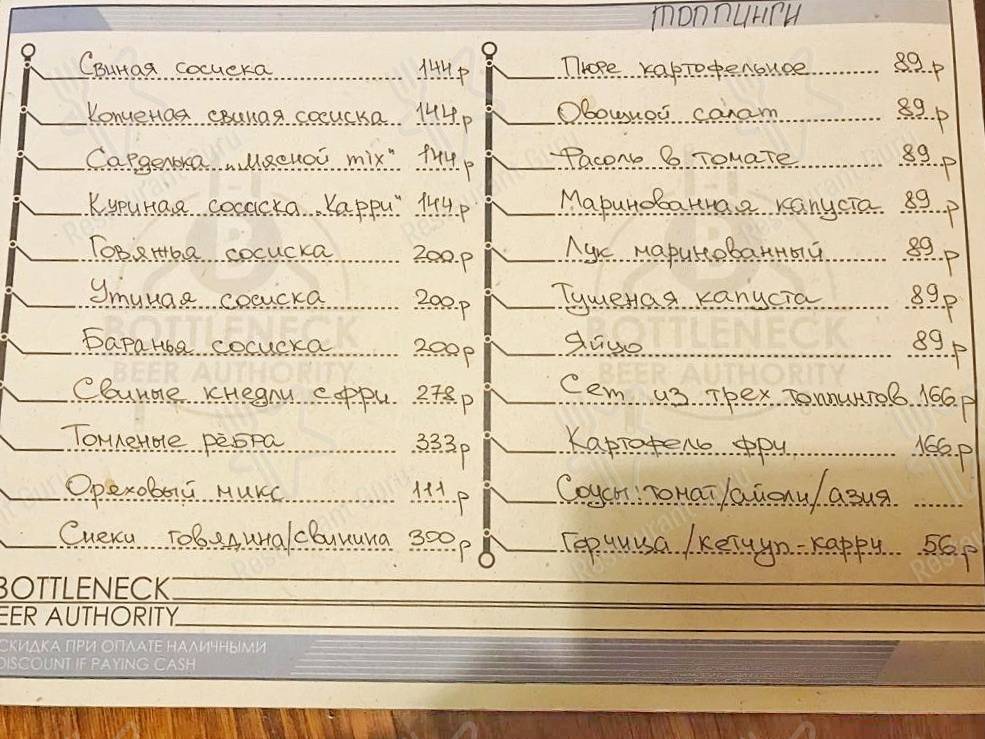 топпинги
Свиная сосиска 144 р
Копченая свиная сосиска 144 р
Сарделька „Мясной mix" 144 р
Куриная сосиска „Карри" 144 р
Говяжья сосиска 200 р
Утиная сосиска 200 р
Баранья сосиска 200 р
Свиные кнедли с фри 278 р
Томленые рёбра 333 р
Ореховый микс 111 р
Снеки говядина/свинина 300 р
Пюре картофельное 89 р
Овощной салат 89 р
Фасоль в томате 89 р
Маринованная капуста 89 р
Лук маринованный 89 р
Тушеная капуста 89 р
Яйцо 89 р
Сет из трех топпингов 166 р
Картофель фри 166 р
Соусы: томат/айоли/азия
Горчица/кетчуп-карри 56 р
BOTTLENECK
BEER AUTHORITY
BOTTLENECK
BEER AUTHORITY
BOTTLENECK
EER AUTHORITY
СКИДКА ПРИ ОПЛАТЕ НАЛИЧНЫМИ
DISCOUNT IF PAYING CASH